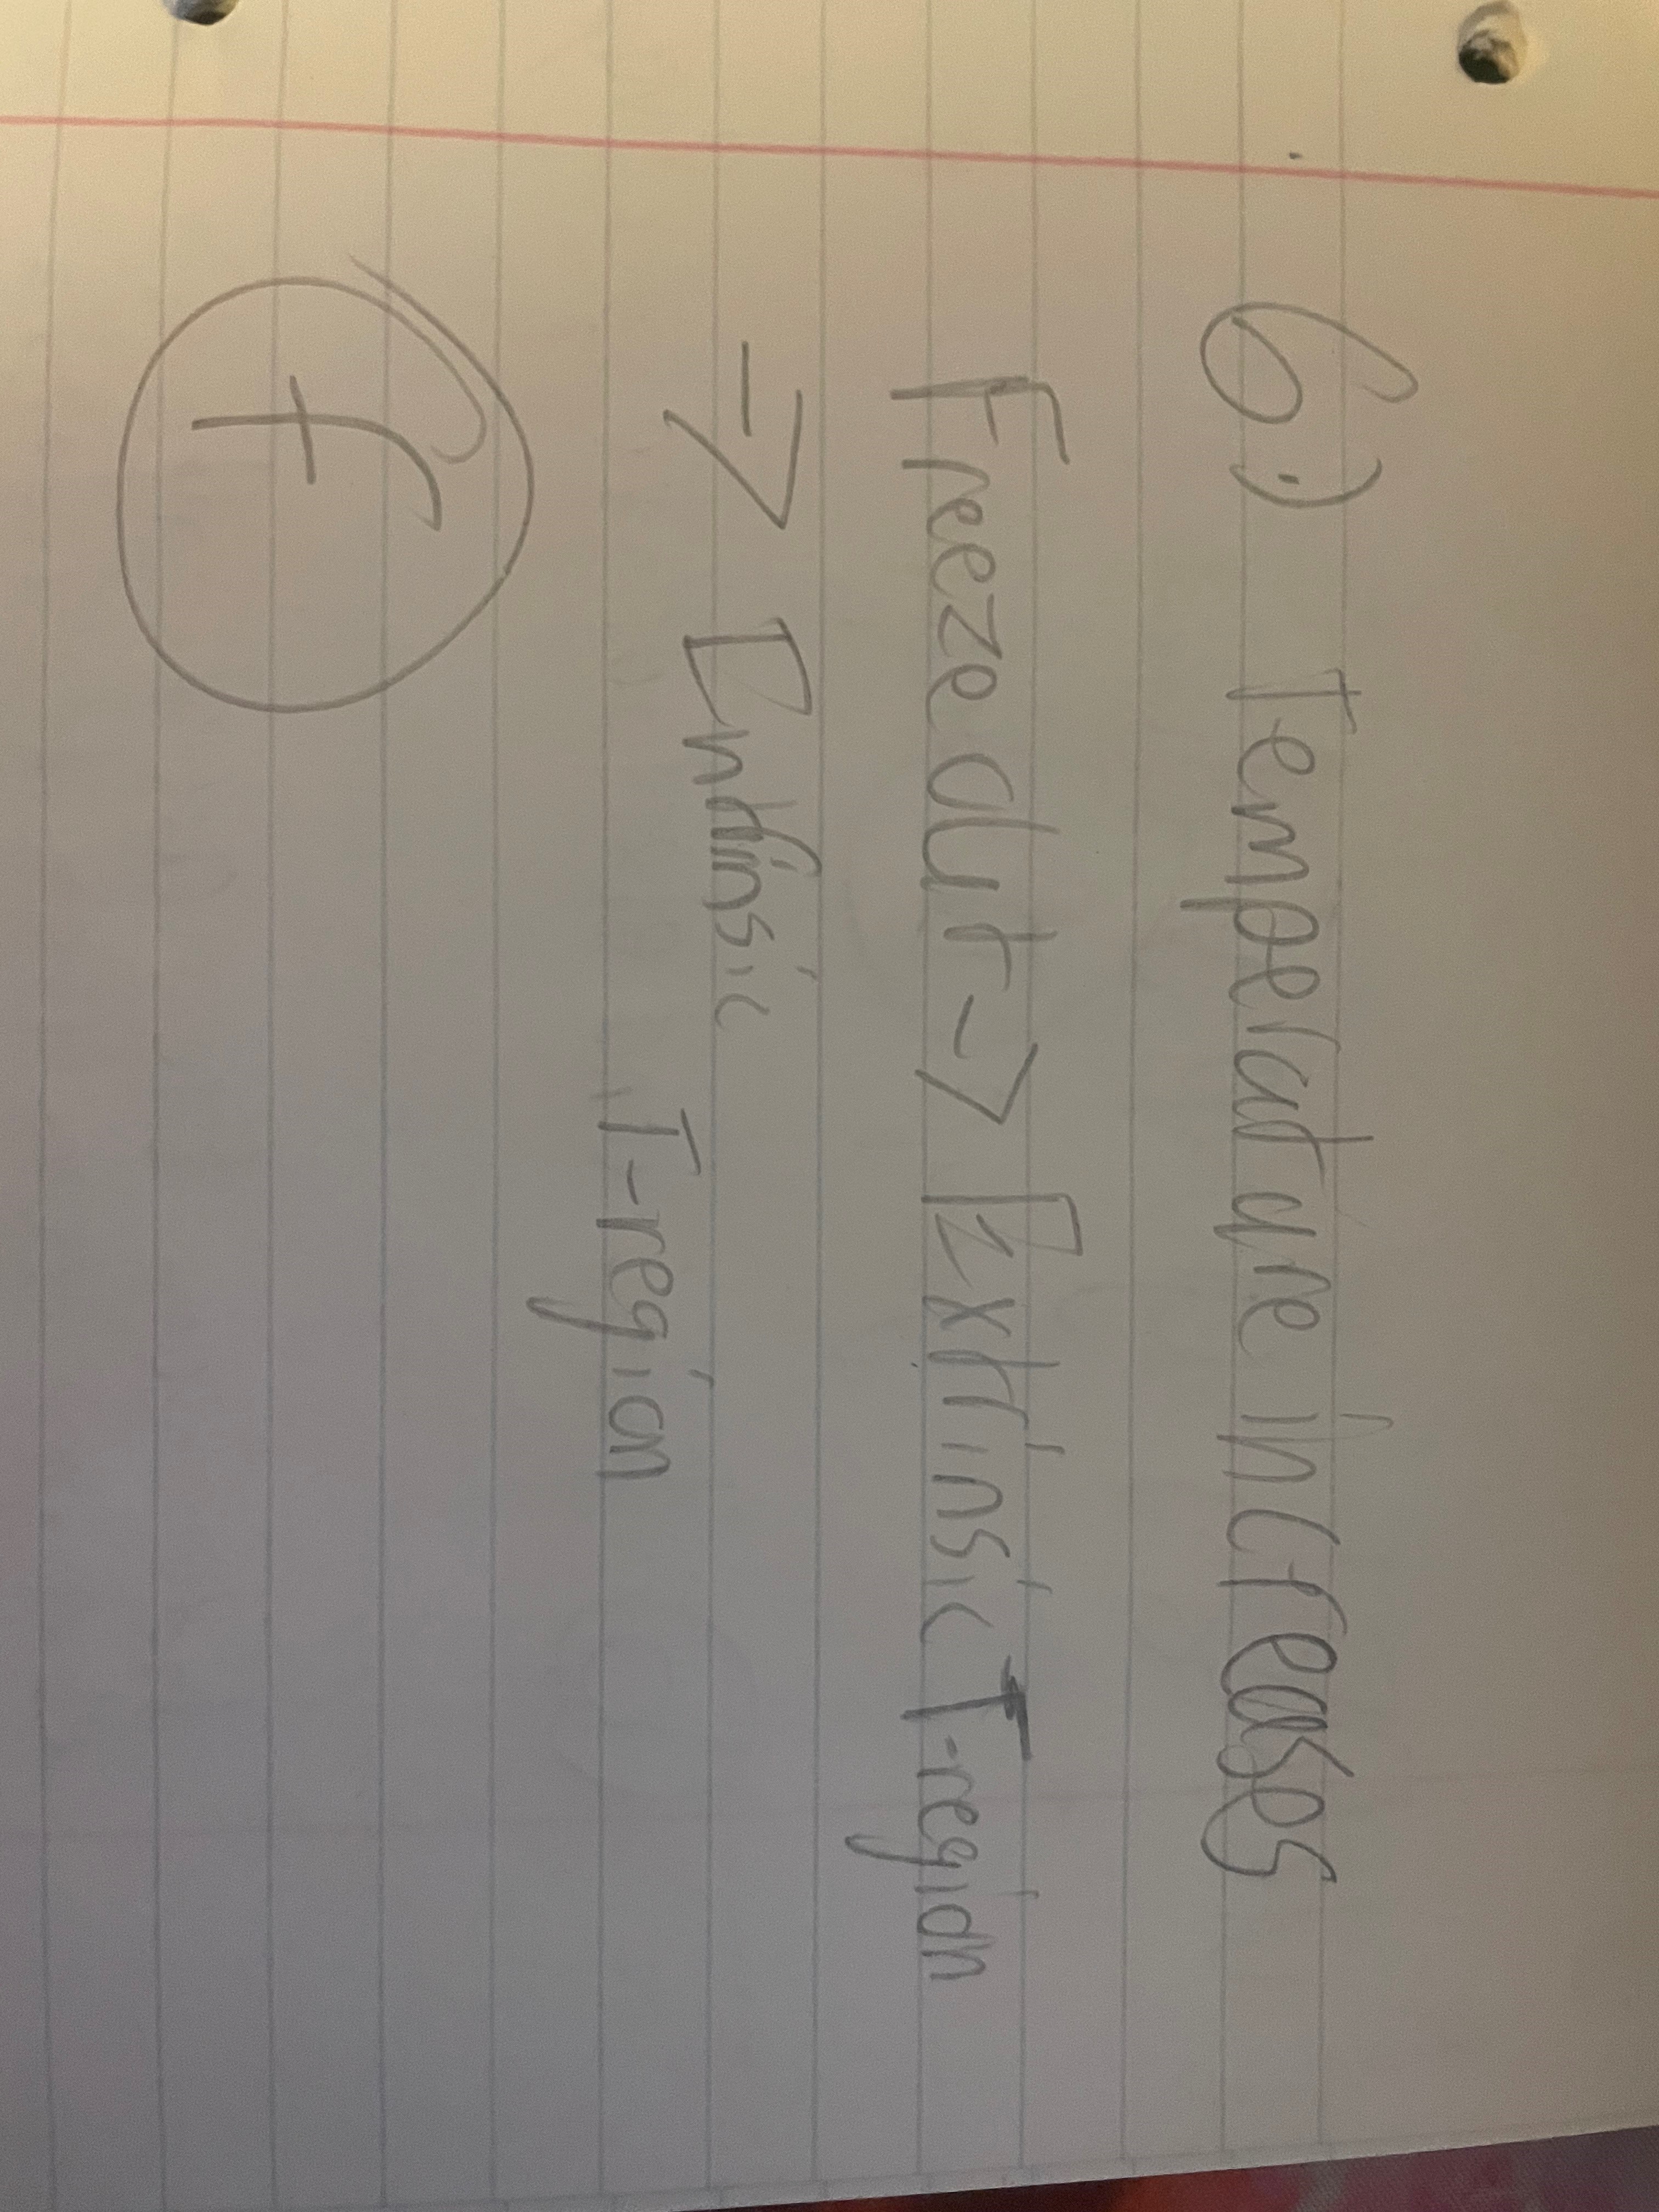 6.) Temperature increases
Freeze out -> Extrinsic T-region
-> Intrinsic
T-region
f